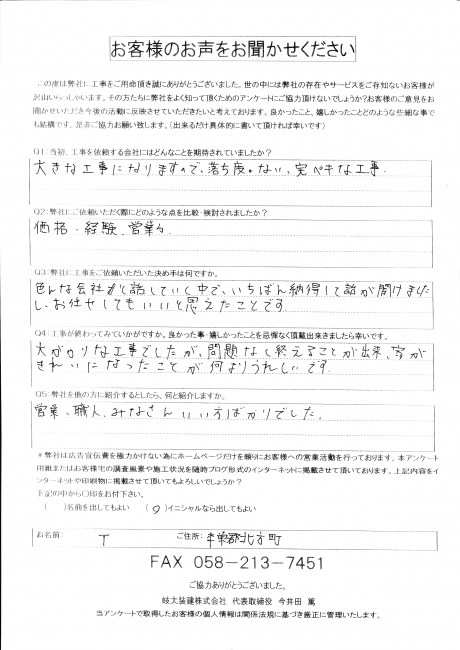 お客様のお声をお聞かせください
この度は弊社に工事をご用命頂き誠にありがとうございました。世の中には弊社の存在やサービスをご存知ないお客様が
沢山いらっしゃいます。その方たちに弊社をよく知って頂くためのアンケートにご協力頂けないでしょうか?お客様のご意見をお
聞かせいただき今後の活動に反映させていただきたいと考えております。良かったこと、嬉しかったことどのような些細な事で
も結構です、是非ご協力お願い致します。(出来るだけ具体的に書いて頂ければ幸いです)
Q1:当初、工事を依頼する会社にはどんなことを期待されていましたか?
大きな工事になりますので、落ち度のない、完ペキな工事.
Q2:弊社にご依頼いただく際にどのような点を比較・検討されましたか?
価格・経験、営業力.
Q3:弊社に工事をご依頼いただいた決め手は何ですか。
色んな会社さと話していく中で、いちばん納得して話が聞けました
し、お任せしてもいいと思えたことです.
Q4:工事が終わってみていかがですか。良かった事・嬉しかったことを忌憚なく頂戴出来きましたら幸いです。
大がかりな工事でしたが、問題なく終えることが出来、家が
きれいになったことが何よりうれしいです.
Q5:弊社を他の方に紹介するとしたら、何と紹介しますか。
営業、職人、みなさんいい方ばかりでした.
*弊社は広告宣伝費を極力かけない為にホームページだけを頼りにお客様への営業活動を行っております。本アンケート
用紙またはお客様宅の調査風景や施工状況を随時ブログ形式のインターネットに掲載させて頂いております。上記内容をイ
ンターネットや印刷物に掲載させて頂いてもよろしいでしょうか?
下記の中から〇印をお付下さい。
( )名前を出してもよい (〇)イニシャルなら出してもよい
お名前: T ご住所: 本巣郡北方町
FAX 058-213-7451
ご協力ありがとうございました。
岐大装建株式会社 代表取締役 今井田 篤
当アンケートで取得したお客様の個人情報は関係法規に基づき厳正に管理いたします。